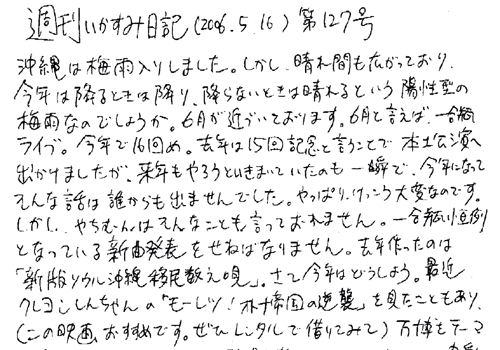 週刊いかすみ日記(2006.5.16)第127号
沖縄は梅雨入りしました。しかし、晴れ間も広がっており、
今年は降るときは降り、降らないときは晴れるという陽性型の
梅雨なのでしょうか。6月が近づいております。6月と言えば、一合瓶
ライブ。今年で16回め。去年は15回記念と言うことで本土公演へ
出かけましたが、来年もやろうといきまいていたのも一瞬で、今年になって
そんな話は誰からも出ませんでした。やっぱり、けっこう大変なのです。
しかし、やちむんはそんなことも言っておれません。一合瓶恒例
となっている新曲発表をせねばなりません。去年作ったのは
「新版ソウル沖縄移民数え唄」。さて今年はどうしよう。最近
クレヨンしんちゃんの「モーレツ!オトナ帝国の逆襲」を見たこともあり、
(この映画、おすすめです。ぜひレンタルで借りてみて)万博をテーマ